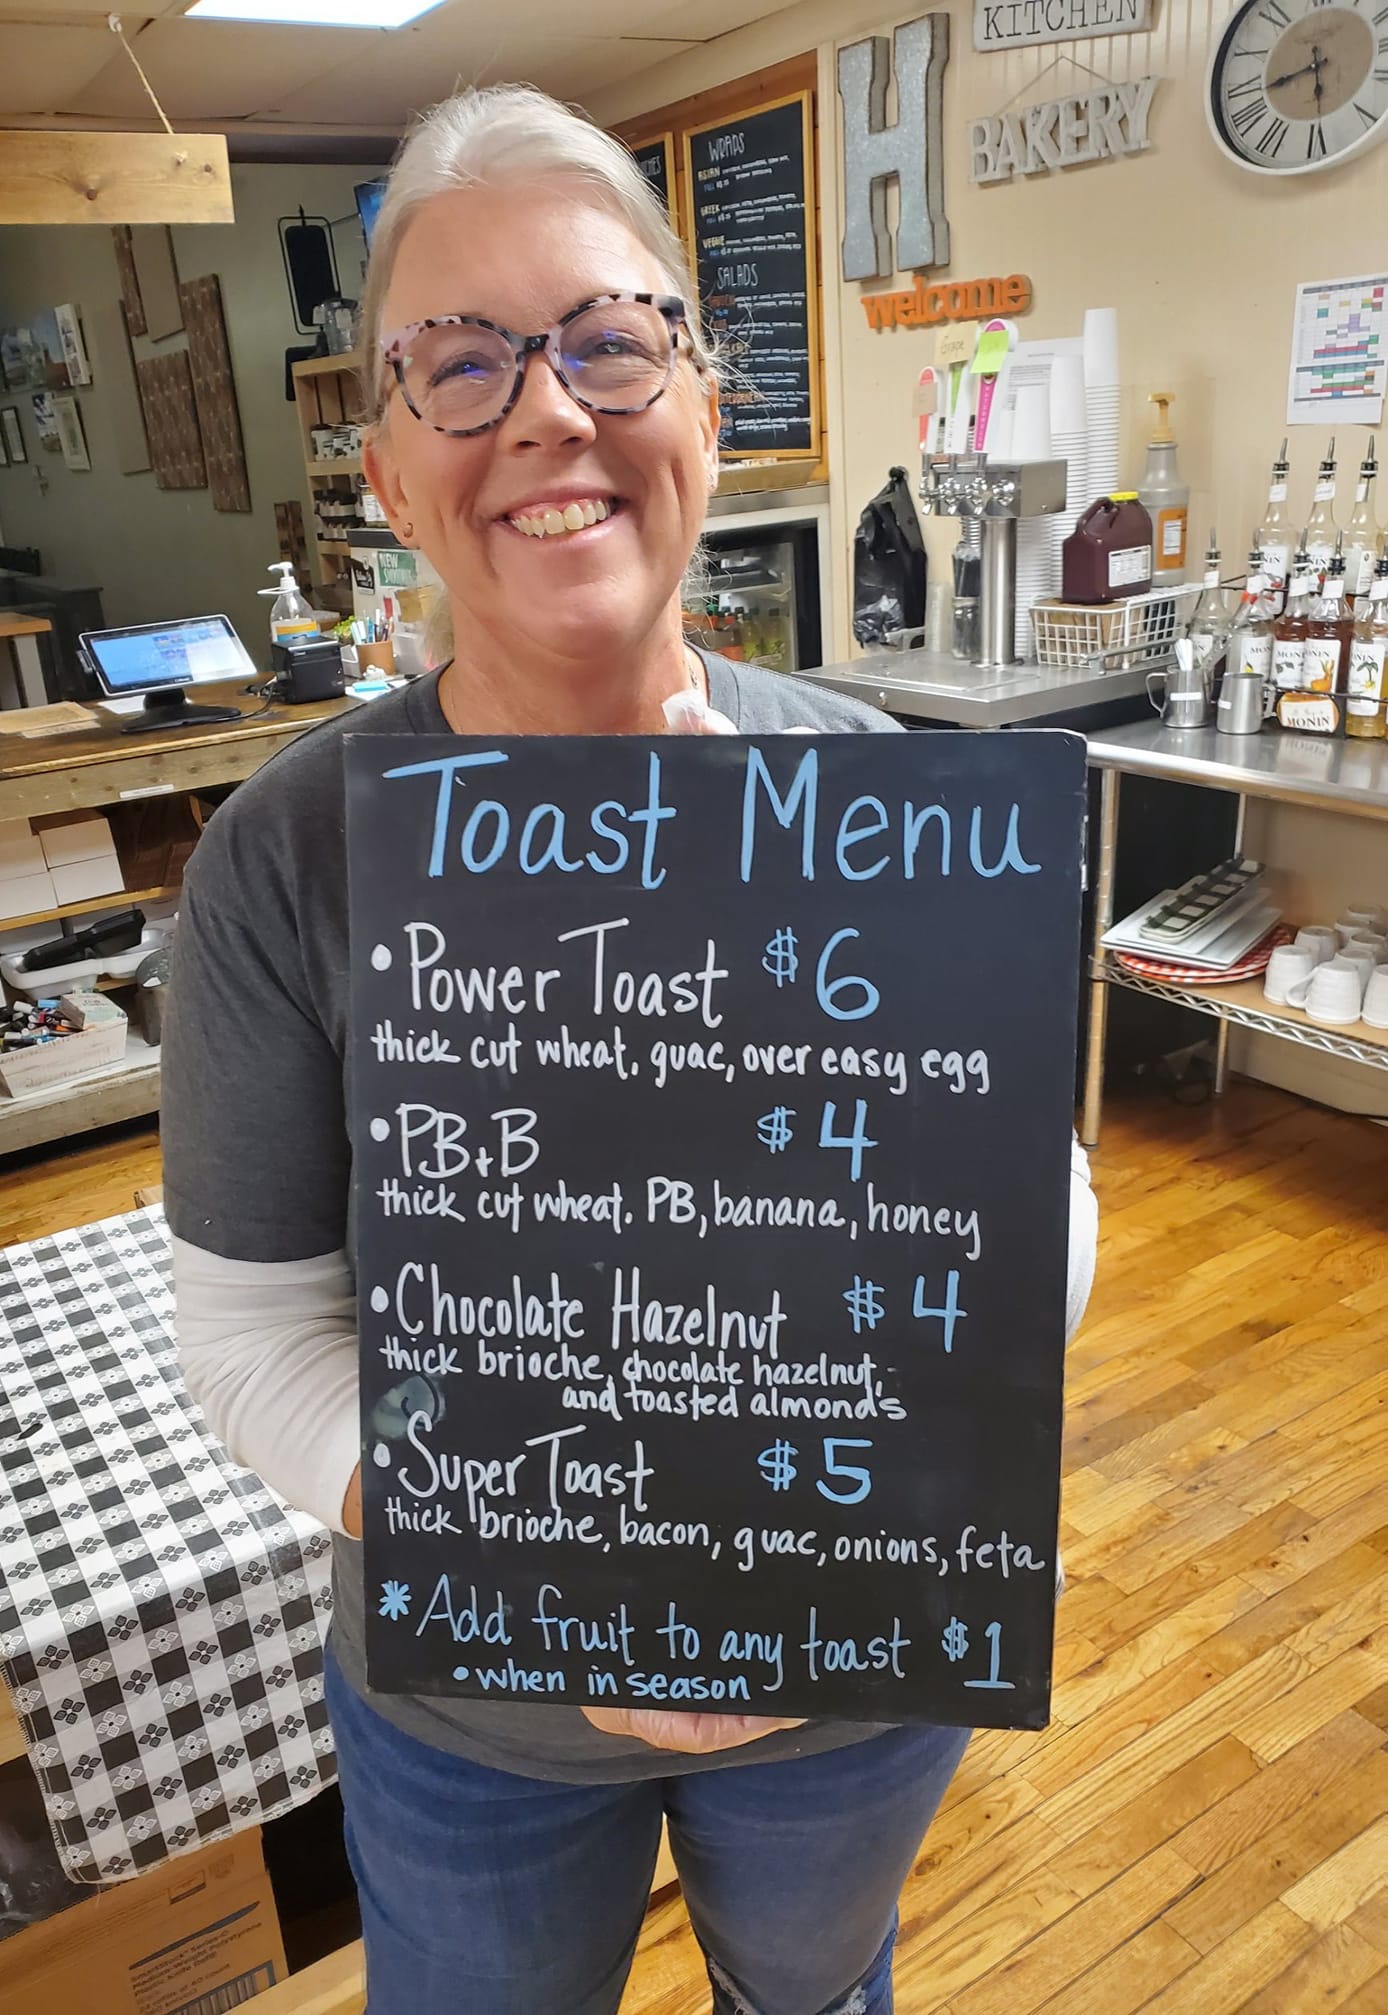 KITCHEN
BAKERY
H
welcome
WRAPS
ASIAN
GREEK
VEGGIE
SALADS
Grape
NEW
MONIN
Toast Menu
• Power Toast $6
thick cut wheat, guac, over easy egg
• PB+B $4
thick cut wheat, PB, banana, honey
• Chocolate Hazelnut $4
thick brioche, chocolate hazelnut,
and toasted almonds
• Super Toast $5
thick brioche, bacon, guac, onions, feta
* Add fruit to any toast $1
• when in season